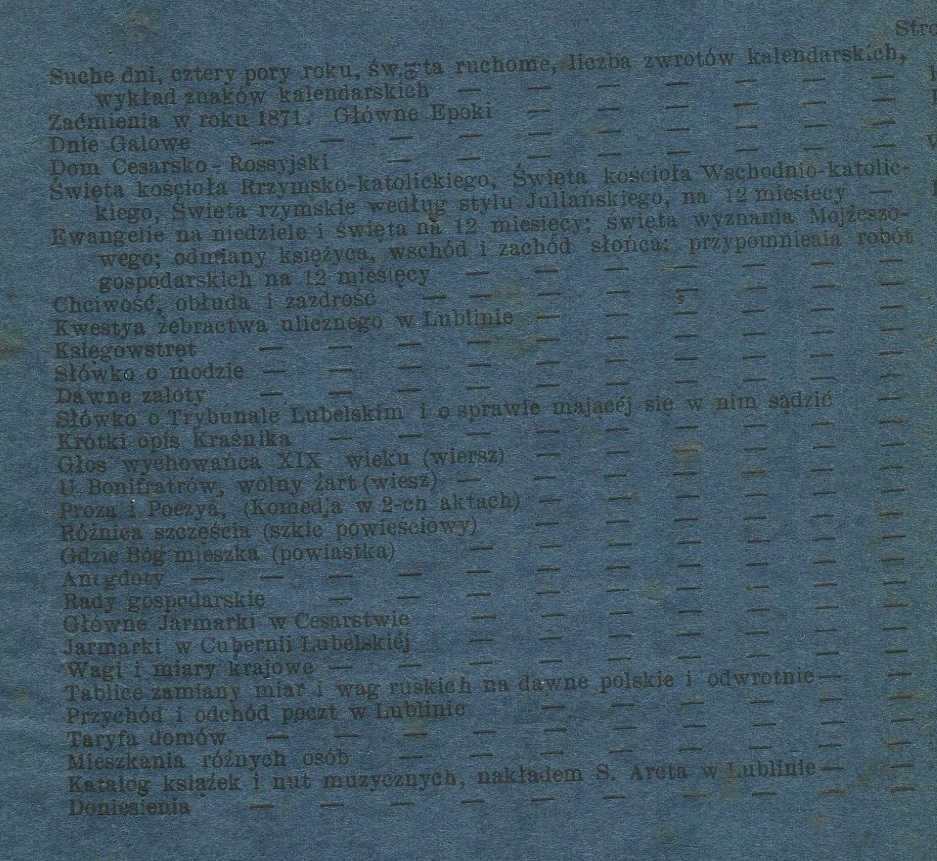 Stro
Suche dni, cztery pory roku, święta ruchome, liczba zwrotów kalendarskich,
wykład znaków kalendarskich — — — — — — —
Zaćmienia w roku 1871. Główne Epoki — — — — — —
Dnie Galowe — — — — — — — — — —
Dom Cesarsko-Rossyjski — — — — — — — —
Święta kościoła Rrzymsko-katolickiego, Święta kościoła Wschodnio-katolic-
kiego, Święta rzymskie według stylu Juliańskiego, na 12 miesięcy —
Ewangelie na niedziele i święta na 12 miesięcy; święta wyznania Mojżeszo-
wego; odmiany księżyca, wschód i zachód słońca; przypomnienia robót
gospodarskich na 12 miesięcy — — — — — — —
Chciwość, obłuda i zazdrość — — — — — — — —
Kwestya żebractwa ulicznego w Lublinie — — — — — —
Księgowstręt — — — — — — — — — —
Słówko o modzie — — — — — — — — — —
Dawne zaloty — — — — — — — — — —
Słówko o Trybunale Lubelskim i o sprawie mającéj się w nim sądzić —
Krótki opis Kraśnika — — — — — — — — —
Głos wychowańca XIX wieku (wiersz) — — — — — —
U Bonifratrów, wolny żart (wiesz) — — — — — — —
Proza i Poezya, (Komedja w 2-ch aktach) — — — — — —
Różnica szczęścia (szkic powieściowy) — — — — — —
Gdzie Bóg mieszka (powiastka) — — — — — — —
Anegdoty — — — — — — — — — — —
Rady gospodarskie — — — — — — — — —
Główne Jarmarki w Cesarstwie — — — — — — —
Jarmarki w Cubernii Lubelskiéj — — — — — — —
Wagi i miary krajowe — — — — — — — — —
Tablice zamiany miar i wag ruskich na dawne polskie i odwrotnie — —
Przychód i odchód poczt w Lublinie — — — — — — —
Taryfa domów — — — — — — — — — —
Mieszkania różnych osób — — — — — — — —
Katalog książek i nut muzycznych, nakładem S. Arcta w Lublinie — —
Doniesienia — — — — — — — — — —